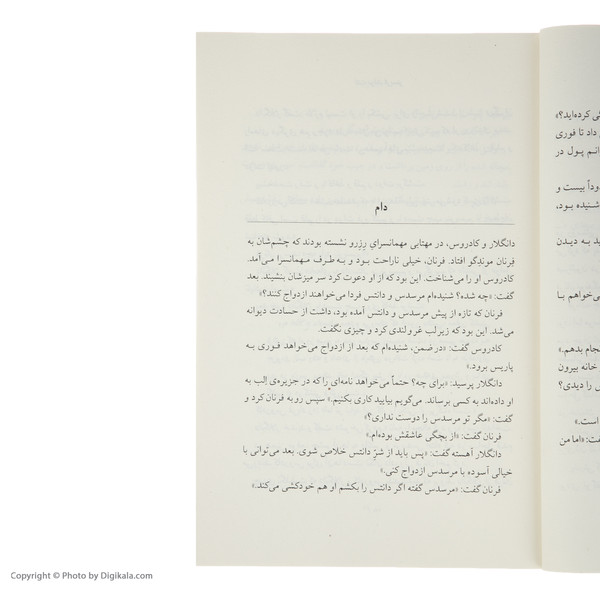 دام
دانگلار و کادروس، در مهتابی مهمانسرای رزِرو نشسته بودند که چشم‌شان به
فرنان موندِگو افتاد. فرنان، خیلی ناراحت بود و به طرف مهمانسرا می‌آمد.
کادروس او را می‌شناخت. این بود که از او دعوت کرد سر میزشان بنشیند. بعد
گفت: «چه شده؟ شنیده‌ام مرسدس و دانتس فردا می‌خواهند ازدواج کنند؟»
فرنان که تازه از پیش مرسدس و دانتس آمده بود، داشت از حسادت دیوانه
می‌شد. این بود که زیر لب غرولندی کرد و چیزی نگفت.
کادروس گفت: «در ضمن، شنیده‌ام که بعد از ازدواج می‌خواهد فوری به
پاریس برود.»
دانگلار پرسید: «برای چه؟ حتماً می‌خواهد نامه‌ای را که در جزیره‌ی اِلب به
او داده‌اند به کسی برساند. می‌گویم بیایید کاری بکنیم.» سپس رو به فرنان کرد و
گفت: «مگر تو مرسدس را دوست نداری؟»
فرنان گفت: «از بچگی عاشقش بوده‌ام.»
دانگلار آهسته گفت: «پس باید از شرّ دانتس خلاص شوی. بعد می‌توانی با
خیالی آسوده با مرسدس ازدواج کنی.»
فرنان گفت: «مرسدس گفته اگر دانتس را بکشم او هم خودکشی می‌کند.»
کرده‌اید؟»
داد تا فوری
پول در
بیست و
شنیده بود،
به دیدن
می‌خواهم با
انجام بدهم.»
خانه بیرون
را دیدی؟
است.»
گفت: «اما من
Copyright © Photo by Digikala.com